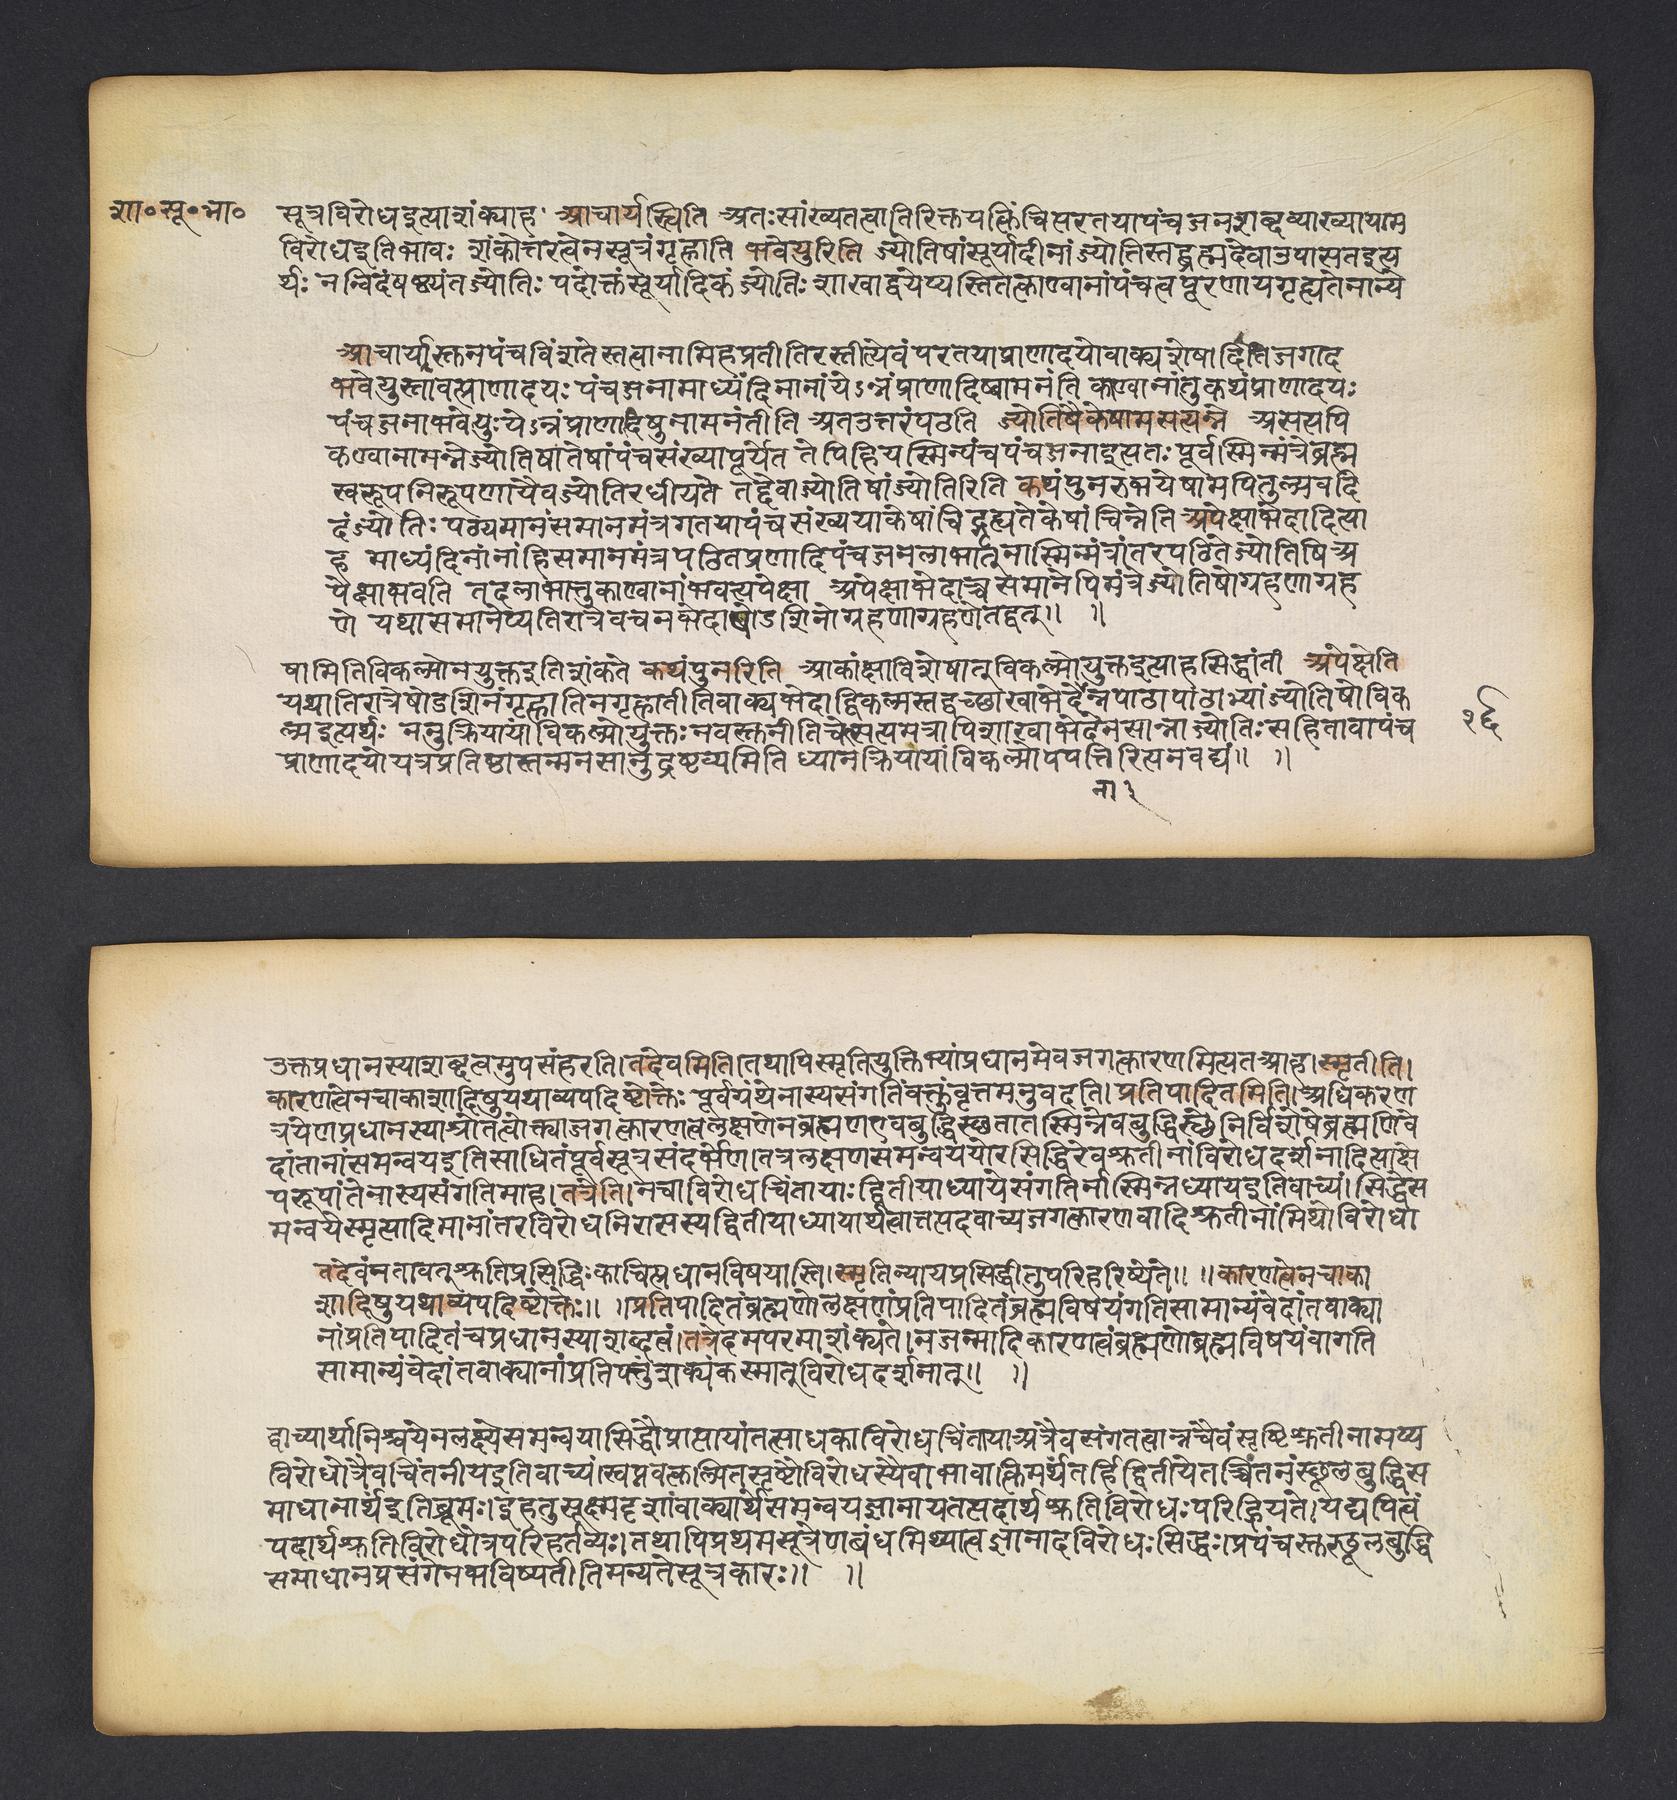 शा॰सू॰भा॰
सूत्रविरोधइत्याशंक्याह आचार्यस्त्विति अतःसांख्यतत्वातिरिक्तयत्किंचित्परतयापंचजनशब्दव्याख्यायाम
विरोधइतिभावः शंकोत्तरत्वेनसूत्रंगृह्णाति भवेयुरिति ज्योतिषांसूर्यादीनांज्योतिस्तद्ब्रह्मदेवाउपासतइत्य
र्थः नन्विदंषष्ठ्यंतज्योतिः पदोक्तंसूर्यादिकंज्योतिः शाखाद्वयेप्यस्तितत्काण्वानांपंचत्वपूरणायगृह्यतेनान्ये
आचार्यास्तनपंचविंशतेस्तत्वानामिहप्रतीतिरस्तीत्येवंपरतयाप्राणादयोवाक्यशेषादितिजगाद
भवेयुस्तावत्प्राणादयः पंचजनामाध्यंदिनानांयेऽन्नंप्राणादिष्वामनंति काण्वानांतुकथंप्राणादयः
पंचजनाभवेयुःयेऽन्नंप्राणादिषुनामनंतीति अतउत्तरंपठति ज्योतिषैकेषामसत्यन्ने असत्यपि
कण्वानामन्नेज्योतिषातेषांपंचसंख्यापूर्येत तेपिहियस्मिन्पंचपंचजनाइत्यतः पूर्वस्मिन्मंत्रेब्रह्म
स्वरूपनिरूपणायैवज्योतिरधीयते तद्देवाज्योतिषांज्योतिरिति कथंपुनरुभयेषामपितुल्यवदि
दंज्योतिः पठ्यमानंसमानमंत्रगतयापंचसंख्ययाकेषांचिद्गृह्यतेकेषांचिन्नेति अपेक्षाभेदादित्या
ह माध्यंदिनानांहिसमानमंत्रपठितप्रणादिपंचजनलाभात्नास्मिन्मंत्रांतरपठितेज्योतिषिअ
पेक्षाभवति तदलाभात्तुकाण्वानांभवत्यपेक्षा अपेक्षाभेदाच्चसमानेपिमंत्रेज्योतिषोग्रहणाग्रह
णे यथासमानेप्यतिरात्रेवचनभेदात्षोडशिनोग्रहणाग्रहणेतद्वत्॥ ॥
षामितिविकल्पोनयुक्तइतिशंकते कथंपुनरिति आकांक्षाविशेषात्विकल्पोयुक्तइत्याहसिद्धांती अपेक्षेति
यथातिरात्रेषोडशिनंगृह्णातिनगृह्णातीतिवाक्यभेदाद्विकल्पस्तद्वच्छाखाभेदेनान्नपाठापाठाभ्यांज्योतिषोविक
ल्पइत्यर्थः ननुक्रियायांविकल्पोयुक्तः नवस्तनीतिचेत्सत्यमत्रापिशाखाभेदेनसान्नाज्योतिःसहितावापंच
२६
प्राणादयोयत्रप्रतिष्ठास्तन्मनसानुद्रष्टव्यमिति ध्यानक्रियायांविकल्पोपपत्तिरित्यनवद्यं॥ ॥
ना३
उक्तप्रधानस्याशब्दत्वमुपसंहरति।तदेवमिति।तथापिस्मृतियुक्तिभ्यांप्रधानमेवजगत्कारणमित्यतआह।स्मृतीति।
कारणत्वेनचाकाशादिषुयथाव्यपदिष्टोक्तेः पूर्वग्रंथेनास्यसंगतिंवक्तुंवृत्तमनुवदति।प्रतिपादितमिति।अधिकरण
त्रयेणप्रधानस्याश्रौतत्वोक्त्याजगत्कारणत्वलक्षणेनब्रह्मणएवबुद्धिस्थतातस्मिन्नेवबुद्धिस्थेनिर्विशेषेब्रह्मणिवे
दांतानांसमन्वयइतिसाधितंपूर्वसूत्रसंदर्भेण।तत्रलक्षणसमन्वययोरसिद्धिरेवश्रुतीनांविरोधदर्शनादित्याक्षे
परूपांतेनास्यसंगतिमाह।तत्रेति।नचाविरोधचिंतायाःद्वितीयाध्यायेसंगतिर्नास्मिन्नध्यायइतिवाच्यं।सिद्धेस
मन्वयेस्मृत्यादिमानांतरविरोधनिरासस्यद्वितीयाध्यायार्थत्वात्तत्पदवाच्यजगत्कारणवादिश्रुतीनांमिथोविरोधा
तदेवंनतावत्श्रुतिप्रसिद्धिःकाचित्प्रधानविषयास्ति।स्मृतिन्यायप्रसिद्धीतुपरिहरिष्येते॥ ॥कारणत्वेनचाका
शादिषुयथाव्यपदिष्टोक्तेः॥ ।प्रतिपादितंब्रह्मणोलक्षणंप्रतिपादितंब्रह्मविषयंगतिसामान्यंवेदांतवाक्या
नांप्रतिपादितंचप्रधानस्याशब्दत्वं।तत्रेदमपरमाशंक्यते।नजन्मादिकारणत्वंब्रह्मणोब्रह्मविषयंवागति
सामान्यंवेदांतवाक्यानांप्रतिपत्तुंशक्यंकस्मात्विरोधदर्शनात्॥ ॥
द्वाच्यार्थानिश्चयेनलक्ष्येसमन्वयासिद्धौप्राप्तायांतत्साधकाविरोधचिंतायाअत्रैवसंगतत्वान्नचैवंसृष्टिश्रुतीनामप्य
विरोधोत्रैवचिंतनीयइतिवाच्यं।स्वप्नवत्कल्पितसृष्टौविरोधस्यैवाभावात्किमर्थंतर्हिद्वितीयेतच्चिंतनंस्थूलबुद्धिस
माधानार्थइतिब्रूमः।इहतुसूक्ष्मदृशांवाक्यार्थसमन्वयज्ञानायतत्पदार्थश्रुतिविरोधःपरिह्रियते।यद्यपित्वं
पदार्थश्रुतिविरोधोत्रपरिहर्तव्यः।तथापिप्रथमसूत्रेणबंधमिथ्यात्वज्ञानादविरोधःसिद्धः।प्रपंचस्तस्थूलबुद्धि
समाधानप्रसंगेनभविष्यतीतिमन्यतेसूत्रकारः॥ ॥